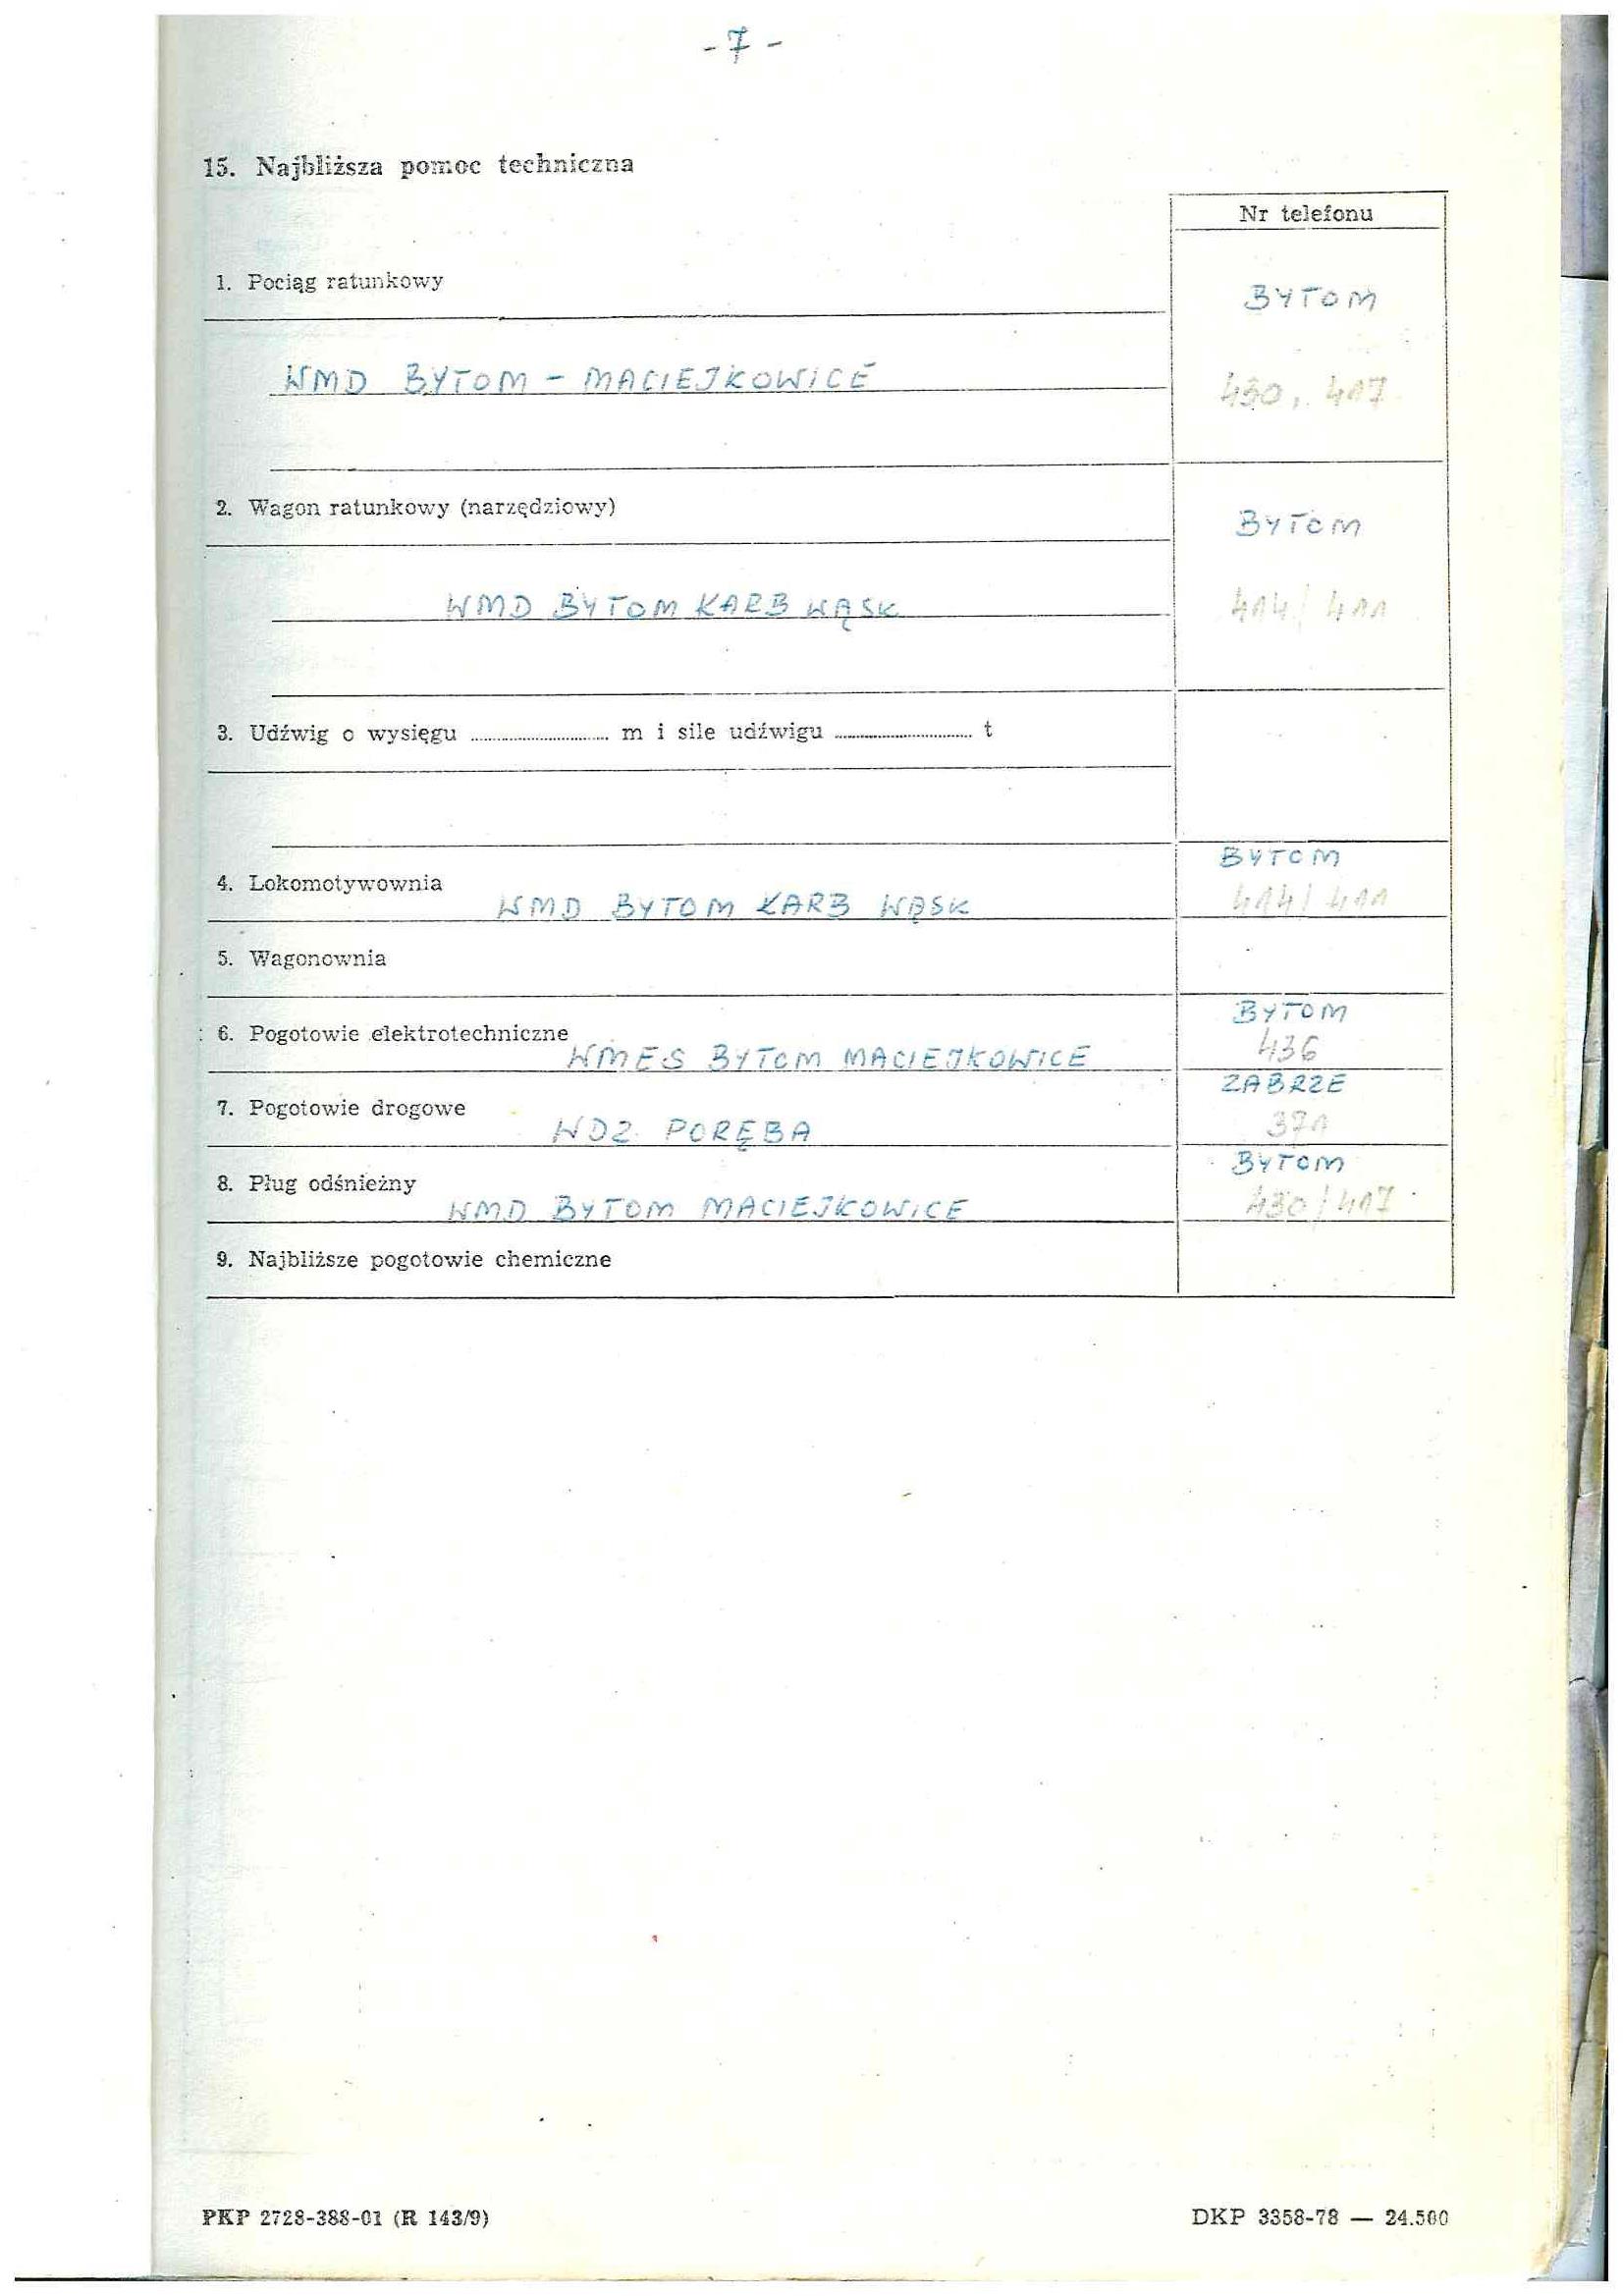 - 7 -
15. Najbliższa pomoc techniczna
Nr telefonu
1. Pociąg ratunkowy
BYTOM
WMD BYTOM - MACIEJKOWICE
430, 417
2. Wagon ratunkowy (narzędziowy)
BYTOM
WMD BYTOM KARB WĄSK
414/ 411
3. Udźwig o wysięgu ........ m i sile udźwigu ........ t
BYTOM
4. Lokomotywownia
WMD BYTOM KARB WĄSK
414/ 411
5. Wagonownia
BYTOM
6. Pogotowie elektrotechniczne
WMES BYTOM MACIEJKOWICE
436
ZABRZE
7. Pogotowie drogowe
WDZ PORĘBA
371
BYTOM
8. Pług odśnieżny
WMD BYTOM MACIEJKOWICE
430/417
9. Najbliższe pogotowie chemiczne
PKP 2728-388-01 (R 143/9)
DKP 3358-78 — 24.500